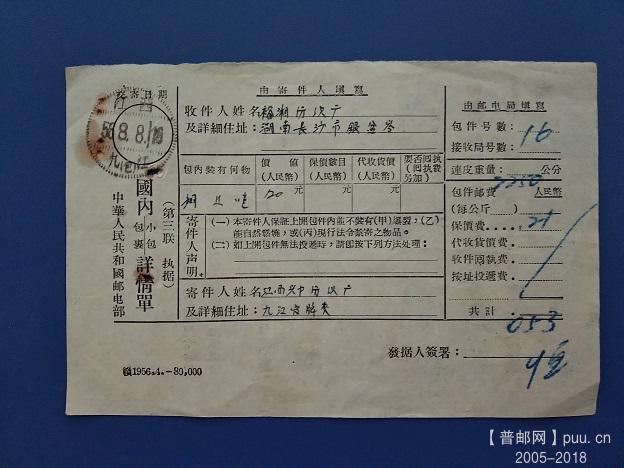 交寄日期
江西
56.8.8.
九江
國內小包包裹詳情單
(第三联 执据)
中華人民共和國邮电部
由寄件人填寫
收件人姓名
及詳細住址:湖南長沙市
包內裝有何物
價值(人民幣)
保價數目(人民幣)
代收貨價(人民幣)
要否回执(回执費另加)
元
元
元
寄件人声明
(一)本寄件人保証上開包件內並不裝有(甲)爆裂;(乙)
能自然燃燒,或(丙)現行法令禁寄之物品。
(二)如上開包件無法投遞時,請卽按下列方法处理:
寄件人姓名
及詳細住址:九江
發据人簽署:
由邮电局填寫
包件号數:16
接收局号數:
連皮重量: 2250 公分
包件邮費 人民幣
(每公斤)
保價費
代收貨價費
收件回執費
按址投遞費
共計 053
贛1956.4.—80,000
【普邮网】puu.cn
2005-2018